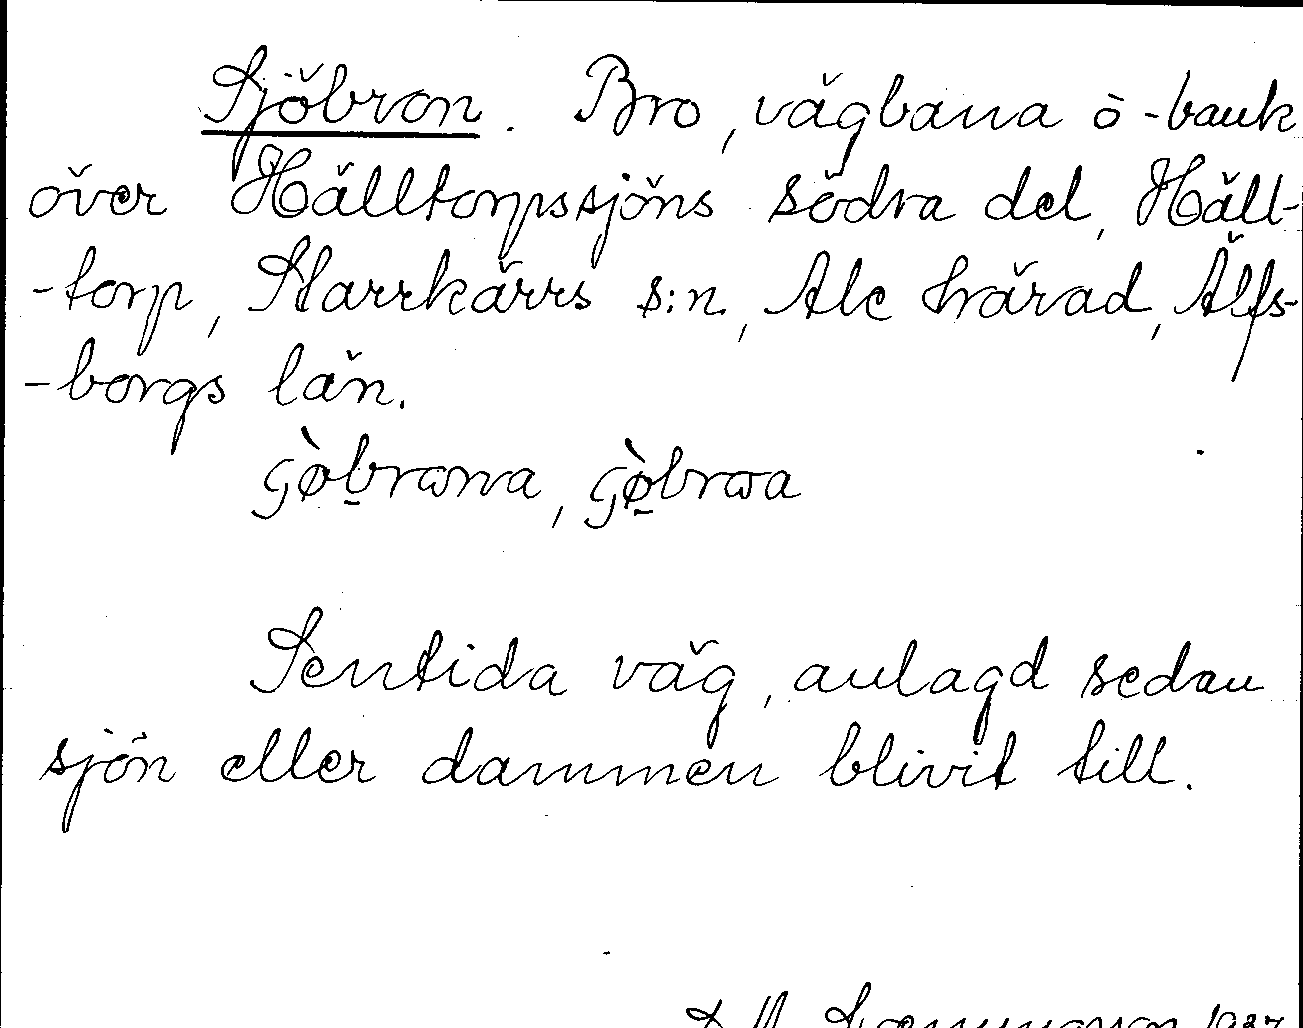 Sjöbron. Bro, vägbana o -bank
över Hälltorpssjöns södra del, Häll-
-torp, Starrkärrs s:n, Ale härad, Älfs-
-borgs län.
Sentida väg, anlagd sedan
sjön eller dammen blivit till.
1937